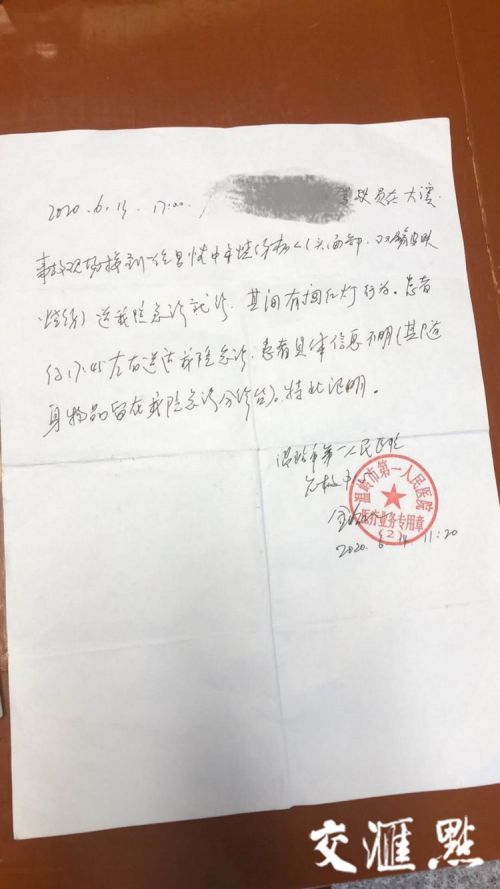 2020.6.13 17:00 驾驶员在大溪
事故现场接到一位男性中年烧伤病人(头面部,双
烧伤)送我院急诊就诊。其间有闯红灯行为。患者
约17:45左右送达我院急诊,患者具体信息不明(其随
身物品留在我院急诊分诊台)。特此证明。
温岭市第一人民医院
急救中心
温岭市第一人民医院
医疗业务专用章
(2)
2020.6.14 11:20
交滙點